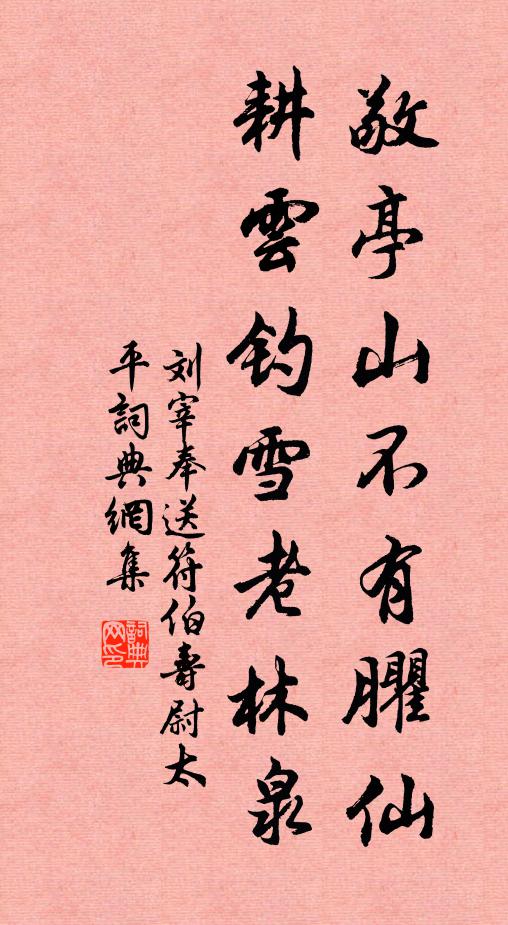 敬亭山不有臞仙
耕雲钓雪老林泉
刘宰奉送符伯壽尉太
平詞典網集
詞典
网印